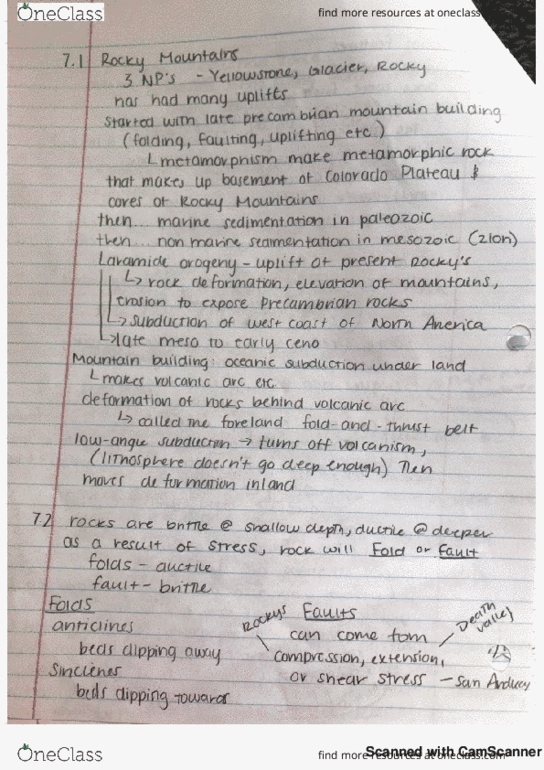 OneClass
find more resources at oneclass
7.1 Rocky Mountains
3 NP's - Yellowstone, Glacier, Rocky
has had many uplifts
Started with late precambrian mountain building
(folding, faulting, uplifting etc.)
metamorphism make metamorphic rock
that makes up basement of Colorado Plateau &
cores of Rocky Mountains
then... marine sedimentation in paleozoic
then... non marine sedmentation in mesozoic (zion)
Laramide orogeny - uplift of present Rocky's
rock deformation, elevation of mountains,
erosion to expose Precambrian rocks
subduction of west coast of North America
late meso to early ceno
Mountain building: oceanic subduction under land
makes volcanic arc etc.
deformation of rocks behind volcanic arc
called the foreland fold-and-thrust belt
low-angle subduction → turns off volcanism,
(lithosphere doesn't go deep enough) Then
moves deformation inland
7.2 rocks are brittle @ shallow depth, ductile @ deeper
as a result of stress, rock will Fold or Fault
folds - ductile
fault - brittle
Folds
anticlines
beds dipping away
Sinclenes
beds dipping towards
Rockys Faults Death Valley
can come from
compression, extension,
or shear stress - San
OneClass
find more resources at oneclass.com
Scanned with CamScanner